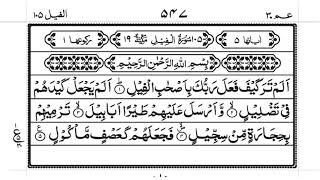 الفيل ١٠٥ ٥٤٧ عم ٣٠
اٰیاتها ٥ ١٠٥ سُوْرَةُ الْفِيْلِ ١٩ رکوعها ١
بِسْمِ اللّٰهِ الرَّحْمٰنِ الرَّحِيْمِ
اَلَمْ تَرَ كَيْفَ فَعَلَ رَبُّكَ بِاَصْحٰبِ الْفِيْلِ ۝ اَلَمْ يَجْعَلْ كَيْدَهُمْ
فِيْ تَضْلِيْلٍ ۝ وَّاَرْسَلَ عَلَيْهِمْ طَيْرًا اَبَابِيْلَ ۝ تَرْمِيْهِمْ
بِحِجَارَةٍ مِّنْ سِجِّيْلٍ ۝ فَجَعَلَهُمْ كَعَصْفٍ مَّاْكُوْلٍ ۝